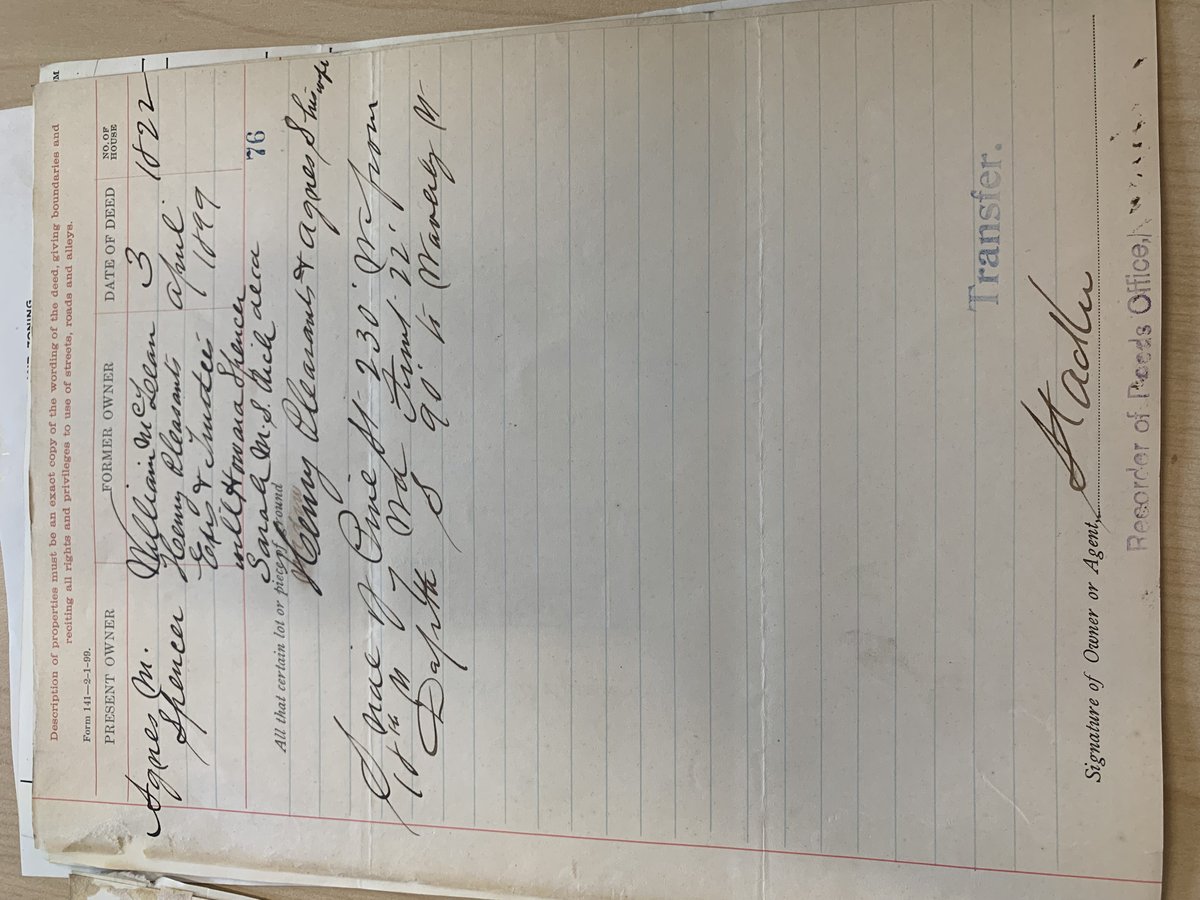 Description of properties must be an exact copy of the wording of the deed, giving boundaries and
reciting all rights and privileges to use of streets, roads and alleys.
Form 141—2-1-99.
PRESENT OWNER FORMER OWNER DATE OF DEED NO. OF HOUSE
Agnes M. William McLean 3 1822
Spencer Henry Pleasants April
Exrs & Trustees 1899
will Howard Spencer
Sarah M. S. 76
All that certain lot or piece of ground
Henry Pleasants & Agnes S his wife
S side of Pine St 230' W from
18th St Front 22'
Depth S 90' to Waverly St
Transfer.
Signature of Owner or Agent,
Recorder of Deeds Office,